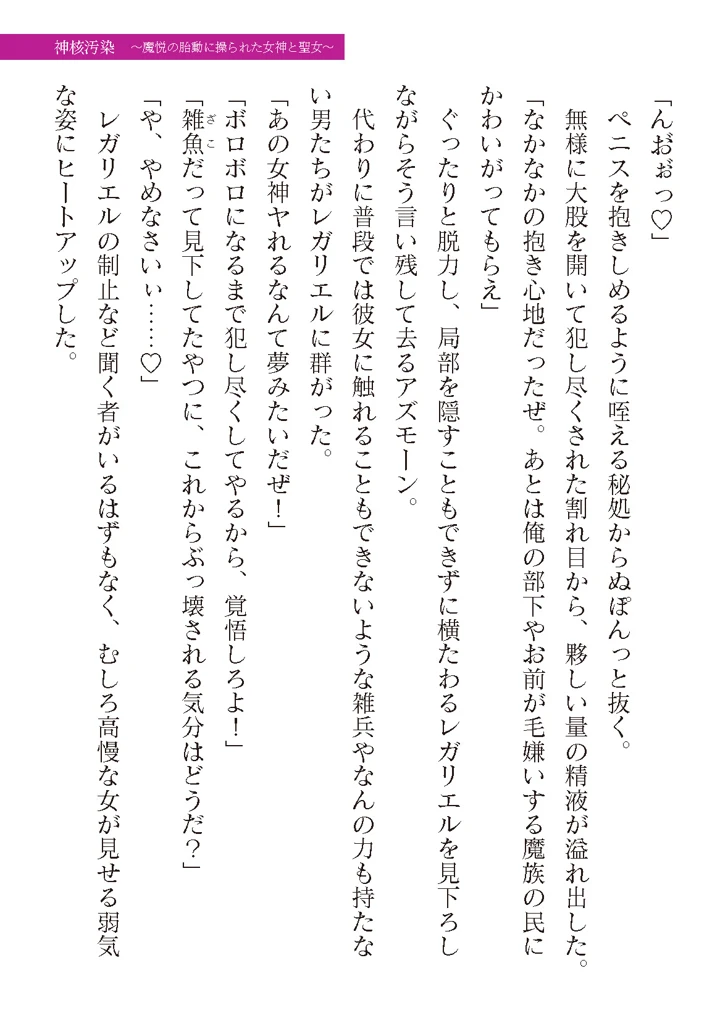 神核汚染　～魔悦の胎動に操られた女神と聖女～
「んおぉっ♡」
ペニスを抱きしめるように咥える秘処からぬぽんっと抜く。
無様に大股を開いて犯し尽くされた割れ目から、夥しい量の精液が溢れ出した。
「なかなかの抱き心地だったぜ。あとは俺の部下やお前が毛嫌いする魔族の民に
かわいがってもらえ」
ぐったりと脱力し、局部を隠すこともできずに横たわるレガリエルを見下ろし
ながらそう言い残して去るアズモーン。
代わりに普段では彼女に触れることもできないような雑兵やなんの力も持たな
い男たちがレガリエルに群がった。
「あの女神ヤれるなんて夢みたいだぜ！」
「ボロボロになるまで犯し尽くしてやるから、覚悟しろよ！」
「雑魚ざこだって見下してたやつに、これからぶっ壊される気分はどうだ？」
「や、やめなさいぃ……♡」
レガリエルの制止など聞く者がいるはずもなく、むしろ高慢な女が見せる弱気
な姿にヒートアップした。